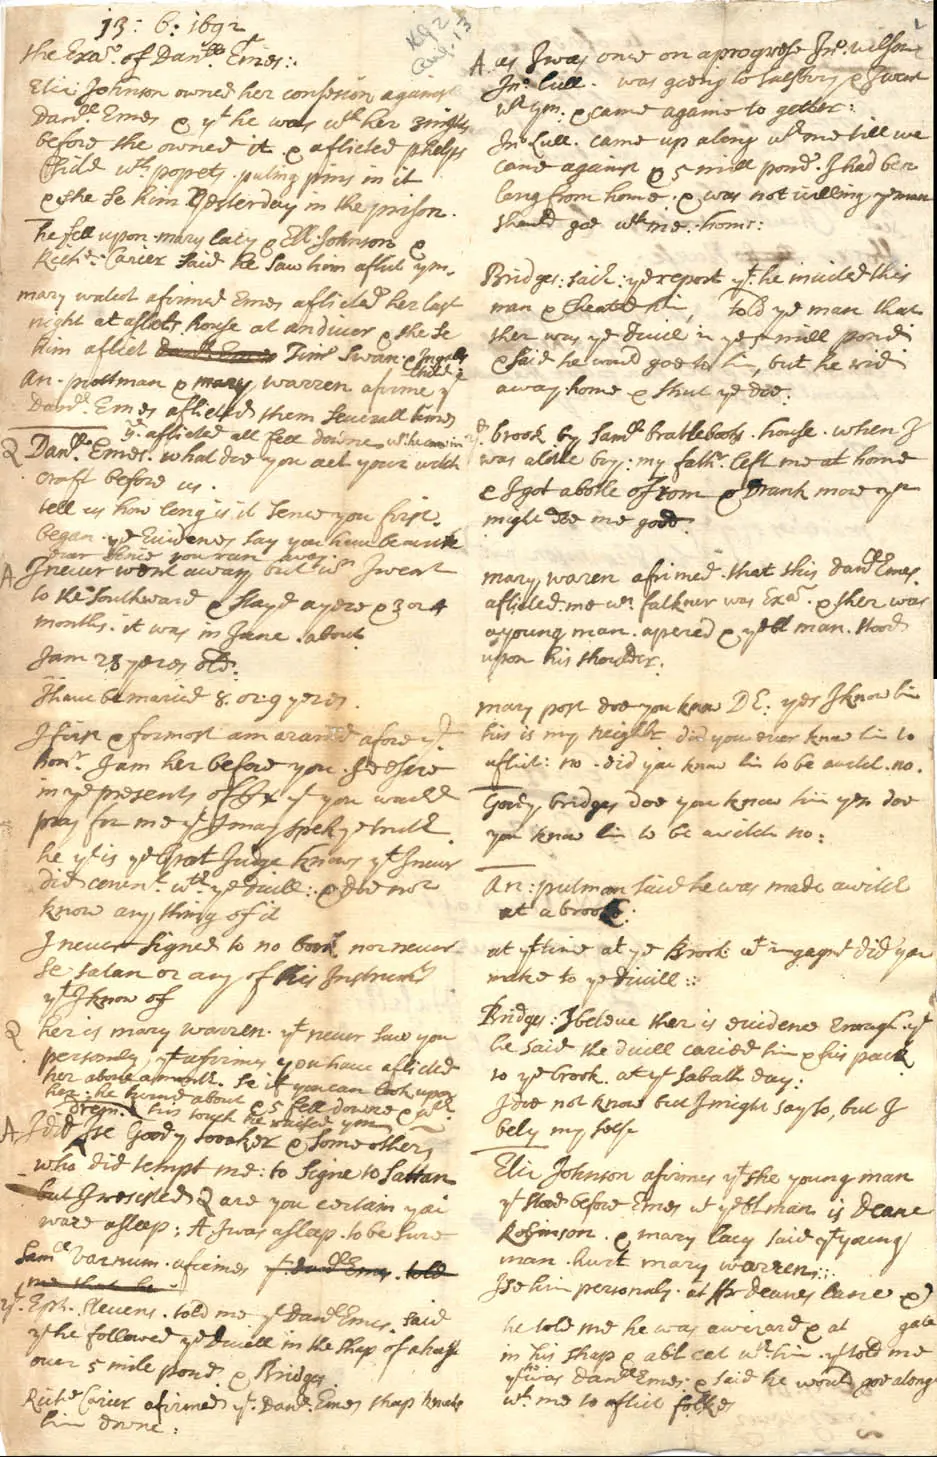 13: 6: 1692
the Exaº. of Danll Emes:.
Eliz: Johnson owned her confesion against
Danll. Emes & yt he was wth her 3 nights
before she owned it & aflicted phelps
Child wth popets. puting pins in it
& she Se him Yesterday in the prison.
he fell upon. mary lacy & Eli: Johnson &
Richd: Carier said he saw him aflict ym.
mary walcot afirmed Emes aflicted her last
night at house at andiver & she Se
him aflict Danll Emes Timº Swan. & Ingals
Child
An. puttman & mary warren afirme yt
Danll. Emes aflicted them Severall times
ye aflicted all fell downe wn he came in
Q Danll. Emes. what doe you act your witch
craft before us.
tell us how long is it Sence you first.
began. ye Evidences say you have
ever since you ran away
A. I never went away but wn I went
to the Southward & stayd a yere & 3 or 4
months. it was in June. about
I am 28 yeres old:
I have be maried 8. or 9 yeres.
I first & formost am araned afore yr.
honrs. I am her before you. I desire
in ye presents of yt you would
pray for me yt I may spek ye truth
he yt is ye Great Judge knows yt I never
did covent. wth. ye divill: & doe not
know any thing of it
I never signed to no book nor never
Se satan or any of his Instruments
yt I know of
Q her is mary warren. yt never saw you
personaly, yt afirmes you have aflicted
her about a month. Se if you can look upon
her: he turned about & 5 fell downe & wth.
his touch he raised ym
A I did Se Goody tooaker & Some others
who did tempt me: to signe to Sattan
but I resisted Q are you certain you
ware asleap: A I was asleap. to be sure
Samll Varnum. afirmes yt Danll Emes. told
me that he
yt. Eph. Stevens. told me yt Danll Emes. said
yt he followed ye Divell in the shap of a
over 5 mile pond. & Bridges
Richd Carier afirmed yt. Danll. Emes shap knockt
him downe:
A. as I was once on a progrese Jnº wilson
Jnº: Lull. was going to Salsbury & I went
wth ym. & came againe to gether:
Jnº Lull. came up along wth me till we
came against & 5 mill pond. I had ben
long from home. & was not willing ye man
should goe wth me. home:
Bridges. said: ye report yt: he invited this
man & Cheated him, told ye man that
ther was ye divell in ye 5 mill pond
& said he would goe to him, but he rid
away home & shut ye dore:
ye. brook by Samll brattebooks. house. when I
was a litle boy: my fathr. left me at home
& I got a botle of rom & Drank more yn
might doe me good
mary waren afirmed. that this Danll Emes.
aflicted. me wn falkner was Exaº. & ther was
a young man. apered & ye bl man. stood
upon his shoulder.
mary post doe you know D E: yes I know him
his is my neighbr did you ever know him to
aflict: no. did you know him to be a witch. no.
Goody bridges doe you know him yes doe
you know him to be a witch no:
An: putman said he was made a witch
at a brook:
at yt time at ye Brook wt ingagmt did you
make to ye divill::
Bridges: I beleve ther is evidence Enough. yt
he said the divell caried him & his pack
to ye brook. at yt Sabath day:
I doe not know but I might say so, but I
bely my selfe
Eliz Johnson afirmes yt the young man
yt stood before Emes wt ye bl man is Deane
Robinson. & mary lacy said yt young
man. hurt mary warren::.
I se him personaly. at Mr Deanes lane &
he told me he was a wizard & at gate
in his shap & a bl cat wth him. yt told me
yt he was Danll Emes: & said he wont goe along
wth. me to aflict folkes